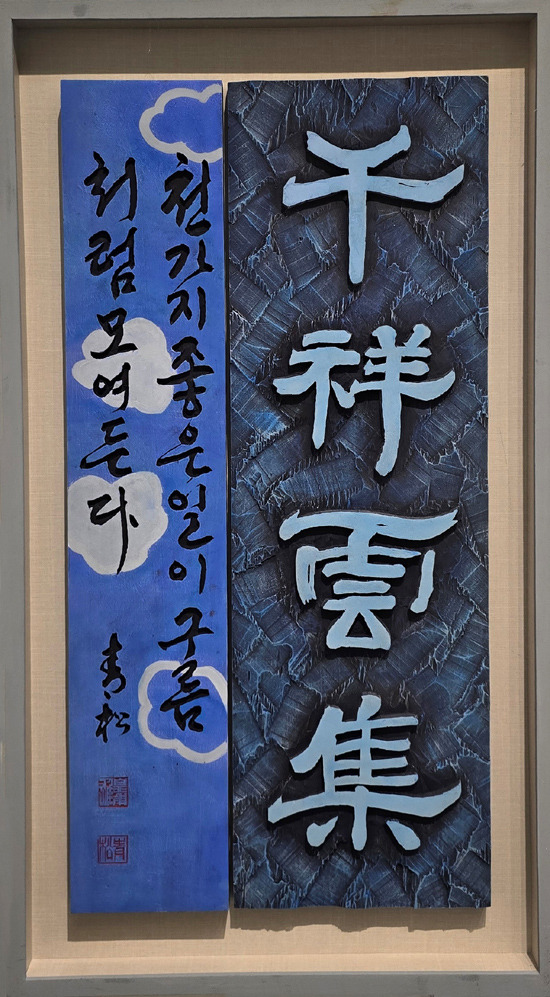 千祥雲集
천가지좋은일이구름
처럼모여든다
青松